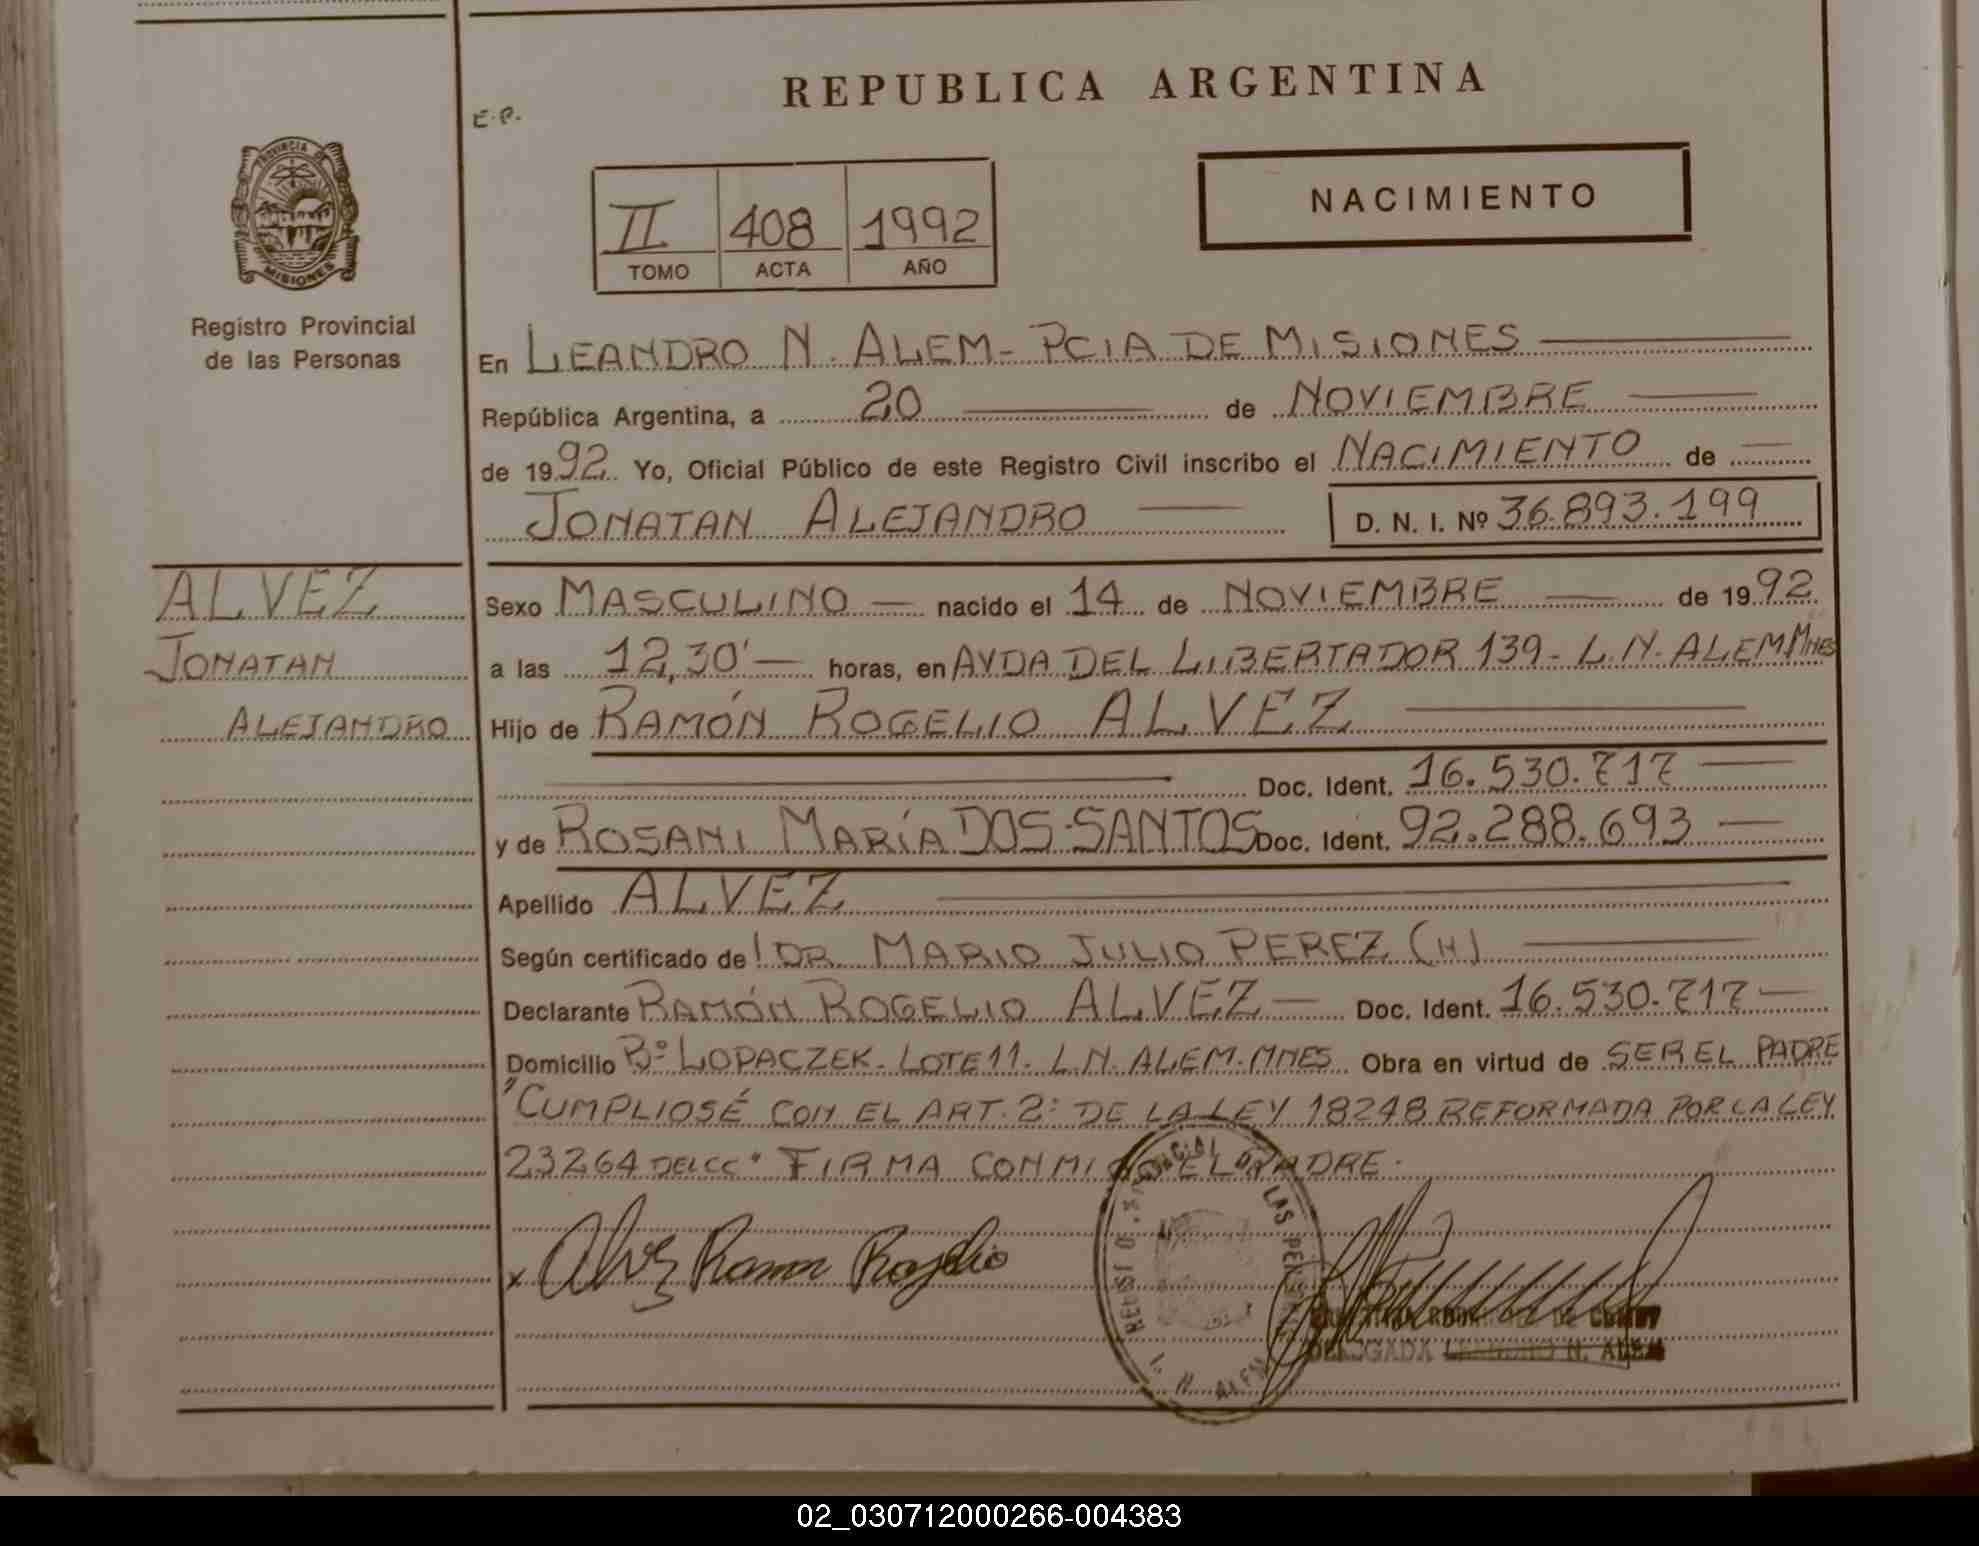 REPUBLICA ARGENTINA
E.P.
PROVINCIA DE
MISIONES
Registro Provincial
de las Personas
II 408 1992
TOMO ACTA AÑO
NACIMIENTO
En LEANDRO N. ALEM - PCIA DE MISIONES
República Argentina, a 20 de NOVIEMBRE
de 1992. Yo, Oficial Público de este Registro Civil inscribo el NACIMIENTO de
JONATAN ALEJANDRO D. N. I. Nº 36.893.199
ALVEZ
JONATAN
ALEJANDRO
Sexo MASCULINO nacido el 14 de NOVIEMBRE de 1992
a las 12,30' horas, en AVDA DEL LIBERTADOR 139 - L.N. ALEM MNES
Hijo de RAMÓN ROGELIO ALVEZ
Doc. Ident. 16.530.717
y de ROSANI MARÍA DOS-SANTOS Doc. Ident. 92.288.693
Apellido ALVEZ
Según certificado de: DR. MARIO JULIO PEREZ (H)
Declarante RAMÓN ROGELIO ALVEZ Doc. Ident. 16.530.717
Domicilio Bº LOPACZEK - LOTE 11 - L.N. ALEM - MNES Obra en virtud de SER EL PADRE
"CUMPLIOSÉ CON EL ART. 2º DE LA LEY 18248 REFORMADA POR LA LEY
23264 DEL CC" FIRMA CONMIGO EL PADRE.
x Alvez Ramon Rogelio
DE LAS
L. N. ALEM
DELEGADA LEANDRO N. ALEM
02_030712000266-004383